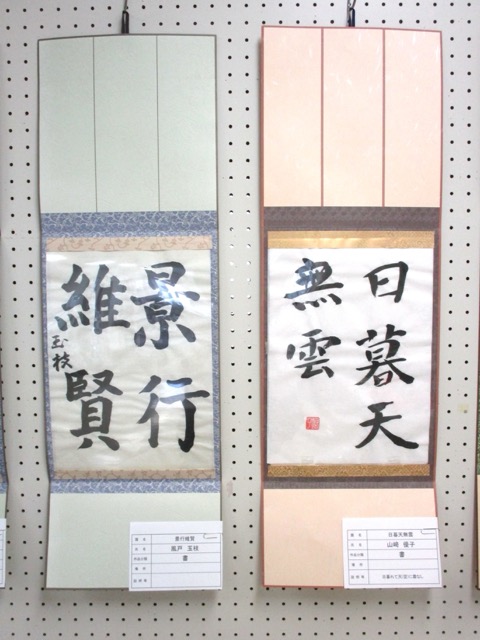 景行
維賢
玉枝
題名 景行維賢
氏名 風戸 玉枝
作品分類 書
日暮天
無雲
題名 日暮天無雲
氏名 山崎 優子
作品分類 書
説明等 日暮れて天(空)に雲なし